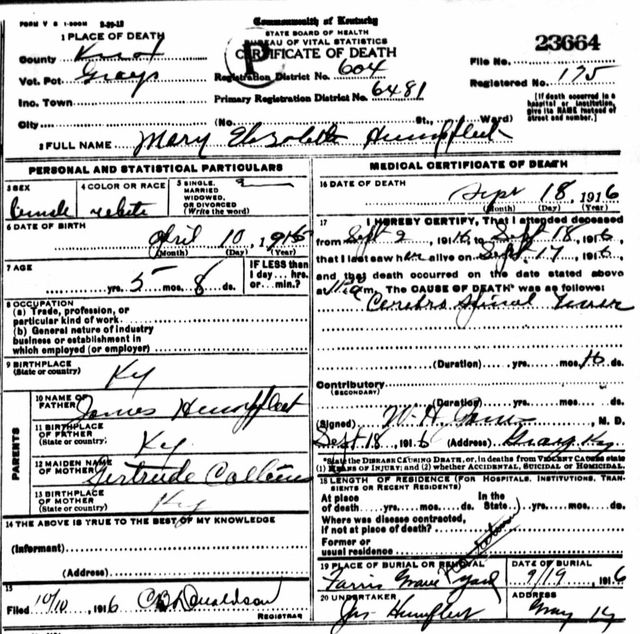 FORM V S 1-500M 2-20-12
Commonwealth of Kentucky
STATE BOARD OF HEALTH
BUREAU OF VITAL STATISTICS
CERTIFICATE OF DEATH
23664
1 PLACE OF DEATH
County Knox
Vot. Pct Grays
Inc. Town
City (No. St., Ward)
Registration District No. 604
Primary Registration District No. 6481
File No.
Registered No. 175
[If death occurred in a hospital or institution, give its NAME instead of street and number.]
2 FULL NAME Mary Elizabeth Humfleet
PERSONAL AND STATISTICAL PARTICULARS
3 SEX Female
4 COLOR OR RACE white
5 SINGLE, MARRIED WIDOWED, OR DIVORCED (Write the word)
6 DATE OF BIRTH
April 10, 1916
(Month) (Day) (Year)
7 AGE
yrs. 5 mos. 8 ds.
IF LESS than 1 day hrs. or min.?
8 OCCUPATION
(a) Trade, profession, or
particular kind of work
(b) General nature of industry
business or establishment in
which employed (or employer)
9 BIRTHPLACE
(State or country) Ky
PARENTS
10 NAME OF FATHER James Humfleet
11 BIRTHPLACE OF FATHER
(State or country) Ky
12 MAIDEN NAME OF MOTHER Gertrude Collins
13 BIRTHPLACE OF MOTHER
(State or country) Ky
14 THE ABOVE IS TRUE TO THE BEST OF MY KNOWLEDGE
(Informant)
(Address)
15
Filed 10/10, 1916 C B Donaldson
REGISTRAR
MEDICAL CERTIFICATE OF DEATH
16 DATE OF DEATH
Sept 18, 1916
(Month) (Day) (Year)
17 I HEREBY CERTIFY, That I attended deceased
from Sept 2, 1916, to Sept 18, 1916,
that I last saw her alive on Sept 17, 1916,
and that death occurred on the date stated above
at 11 a m. The CAUSE OF DEATH* was as follows:
Cerebro Spinal Fever
(Duration) yrs. mos. 16 ds.
Contributory
(SECONDARY)
(Duration) yrs. mos. ds.
(Signed) W. H. M. D.
Sept 18, 1916 (Address) Grays Ky.
*State the DISEASE CAUSING DEATH, or, in deaths from VIOLENT CAUSES state
(1) MEANS OF INJURY; and (2) whether ACCIDENTAL, SUICIDAL or HOMICIDAL.
18 LENGTH OF RESIDENCE (FOR HOSPITALS, INSTITUTIONS, TRANSIENTS OR RECENT RESIDENTS)
At place of death yrs. mos. ds. In the State yrs. mos. ds.
Where was disease contracted,
if not at place of death?
Former or
usual residence
19 PLACE OF BURIAL OR REMOVAL
Farris Grave Yard
DATE OF BURIAL
9/19, 1916
20 UNDERTAKER
Jas Humfleet
ADDRESS
Gray Ky